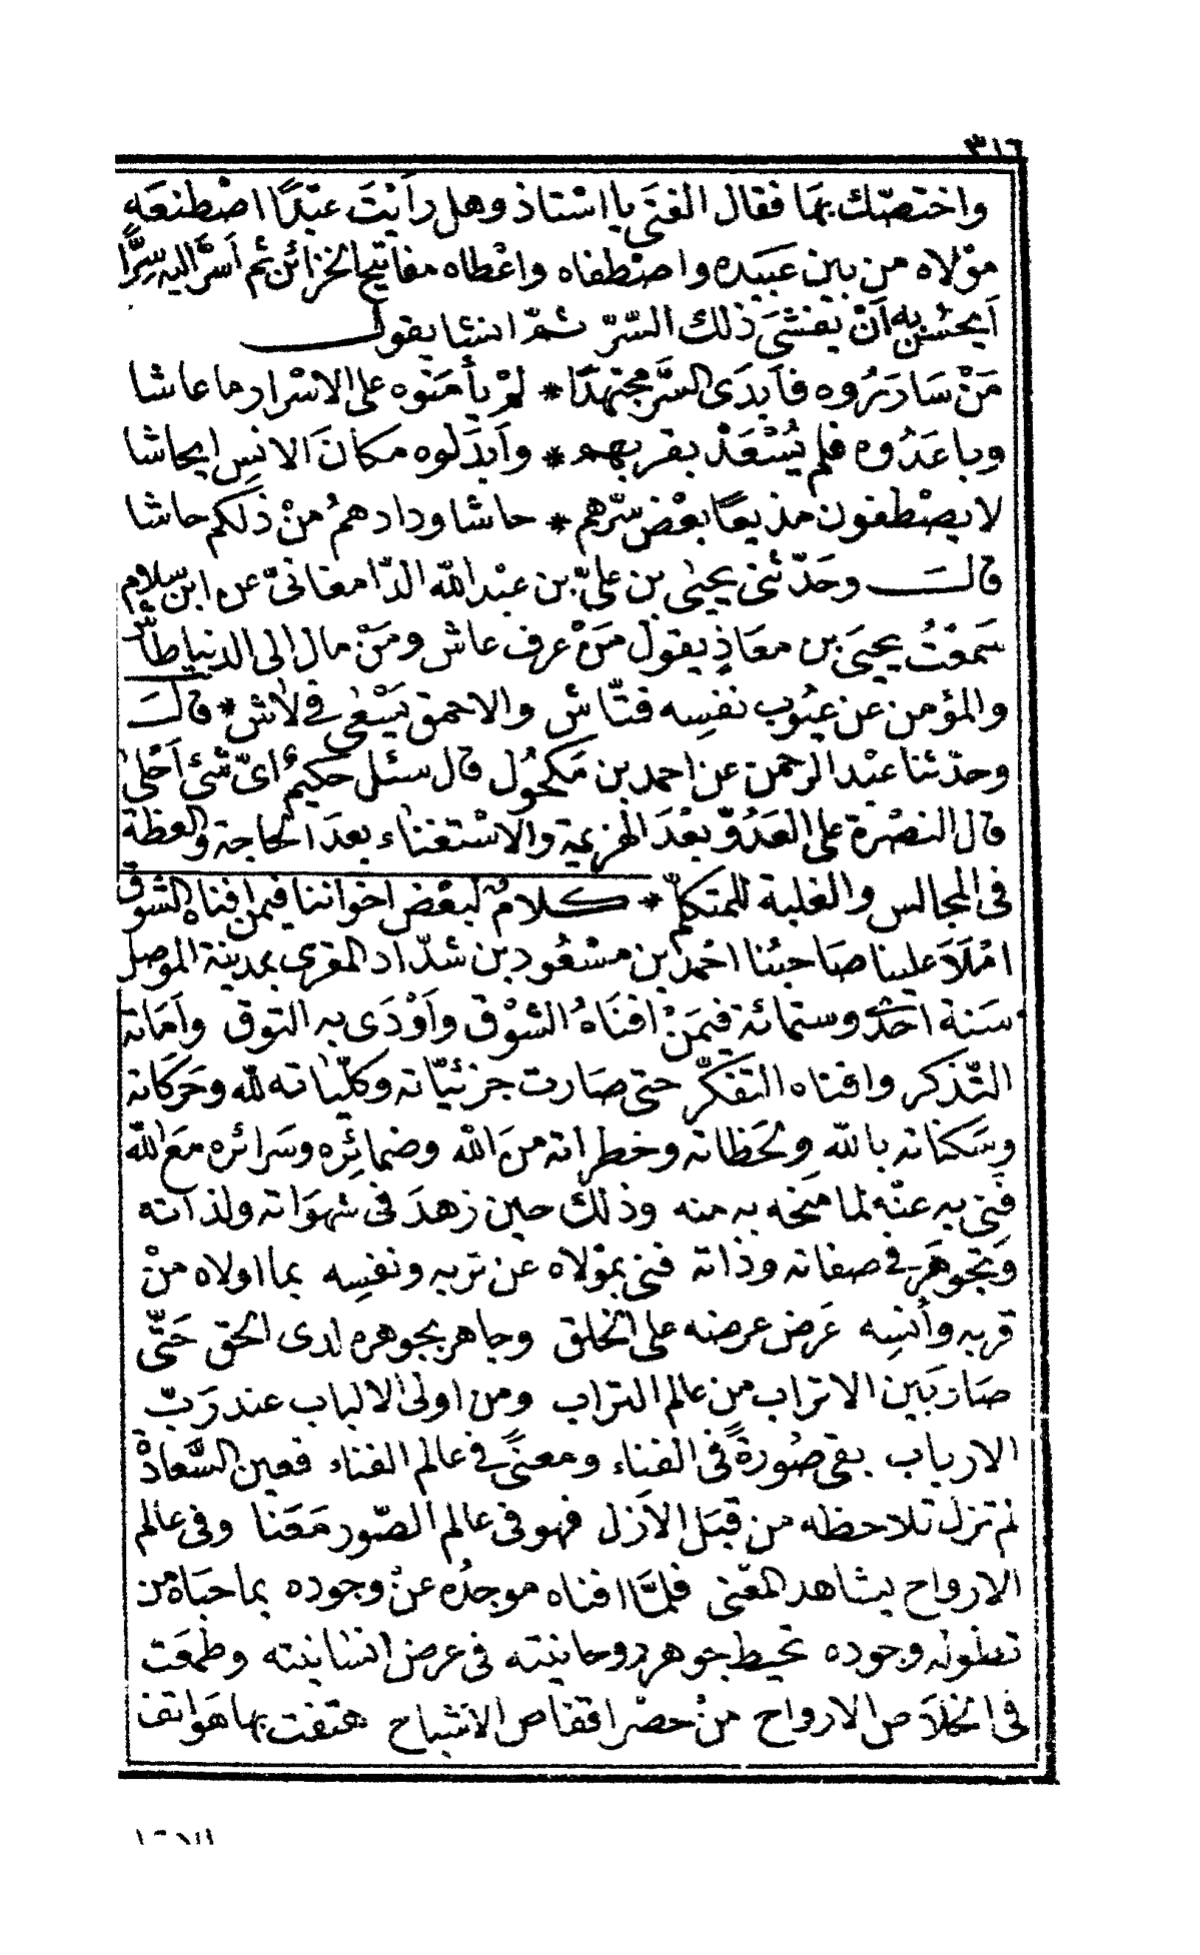 ٣١٦
واختصّك بها فقال الفتى يا استاذ وهل رأيْتَ عبْدًا اصْطنعَه
موْلاه من بين عبيده واصْطفاه واعْطاه مفاتيح الخزائن ثم اَسَرَّ اليه سِرًّا
اَيحسُن به اَنْ يفشىَ ذلك السّرّ ثمّ انشا يقول
مَنْ سَارَرُوه فاَبدَى السَّر مجتهدًا * لمْ يأمَنوه على الاسْرار ما عاشا
وباعَدُوه فلم يُسْعَدْ بقربهم * واَبدَلوه مكانَ الانسِ ايحاشا
لا يصْطفون مذيعًا بعْض سرّهم * حاشا ودادهمُ منْ ذلكم حاشا
قالَ وحَدّثنى يحيى بن علىّ بن عبْد الله الدّامغانىّ عن ابن سلام
سَمعْتُ يحيىَ بن معَاذٍ يقول مَنْ عرف عاش ومَنْ مال الى الدنيا طاش
والمؤمن عن عيُوب نفسِه فتّاش والاحمق يَسْعى فى لاش * قالَ
وحدّثنا عبْد الرحمن عن احمد بن مَكحُول قال سئل حكيمٌ اىّ شئ اَحْلىٰ
قال النصْرة على العَدُوّ بعْدَ الهزيمة والاسْتغناء بعدَ الحاجة والعظة
فى المجالس والغلبة للمتكلّم * كلامٌ لبعْض اخواننا فيمن افناه الشوق
امْلَاَ علينا صَاحبُنا احْمد بن مسْعُود بن شدّاد المقرى بمدينة الموصل
سَنة احَدى وستمائة فيمَنْ افنَاهُ الشوْق واَوْدَى به التوق واَمَاته
التّذكر وافناه التفكّر حتى صَارت جزئيّاته وكلّياته لله وحَرَكاته
وسَكناته بالله ولحَظاته وخطراته منَ الله وضمائِره وسَرائره معَ الله
فنِى به عنْه لما منحَه به منه وذلكَ حين زهدَ فى شهوَاته ولذاته
وَتجوهَر فى صفاته وذاته فنى بموْلاه عن تربه ونفسِه بما اولاه منْ
قربه وأنسِه عَرض عرضه على الخلق وجاهر بجوهره لدى الحق حَتّى
صَارَ بَين الاتراب من عالم التراب ومن اولى الالباب عند رَبّ
الارباب بقى صُورةً فى الفناء ومعنًى فى عالم الفناء فعين السَّعادة
لم تزل تلاحظه من قبَل الأزل فهو فى عالم الصّور مَعَنا وفى عالم
الارواح يشاهد المعْنى فلمَّا افناه موجدُه عنْ وجوده بما حبَاه من
وجوده تحيط جوهر روحانيته فى عرض انسانيته وطمعَت
فى اخلَاص الارواح منْ حصْر اقفاص الاشباح هتفت بها هَواتف